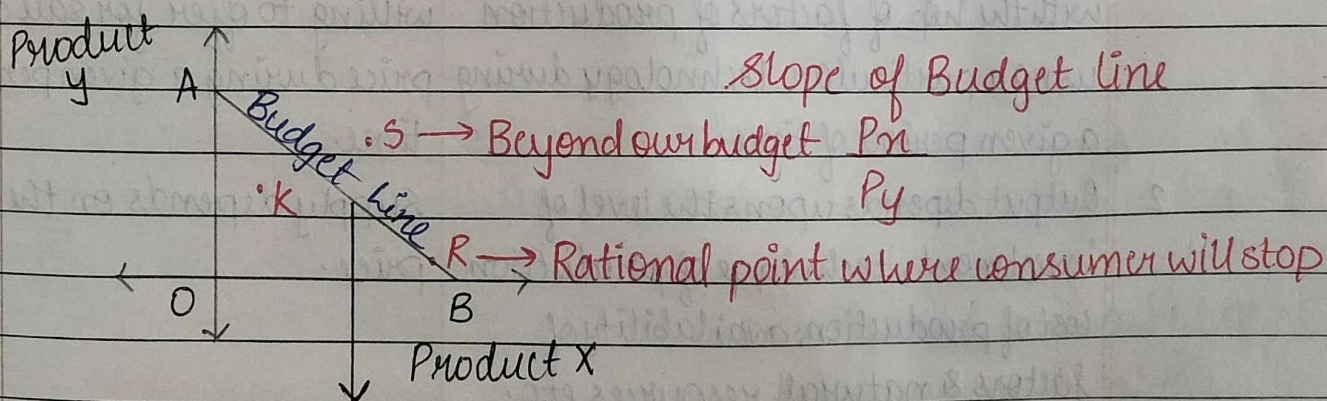 Product
y
A
Slope of Budget line
Budget Line
.S → Beyond our budget
Px
Py
.K
R → Rational point where consumer will stop
O
B
Product X